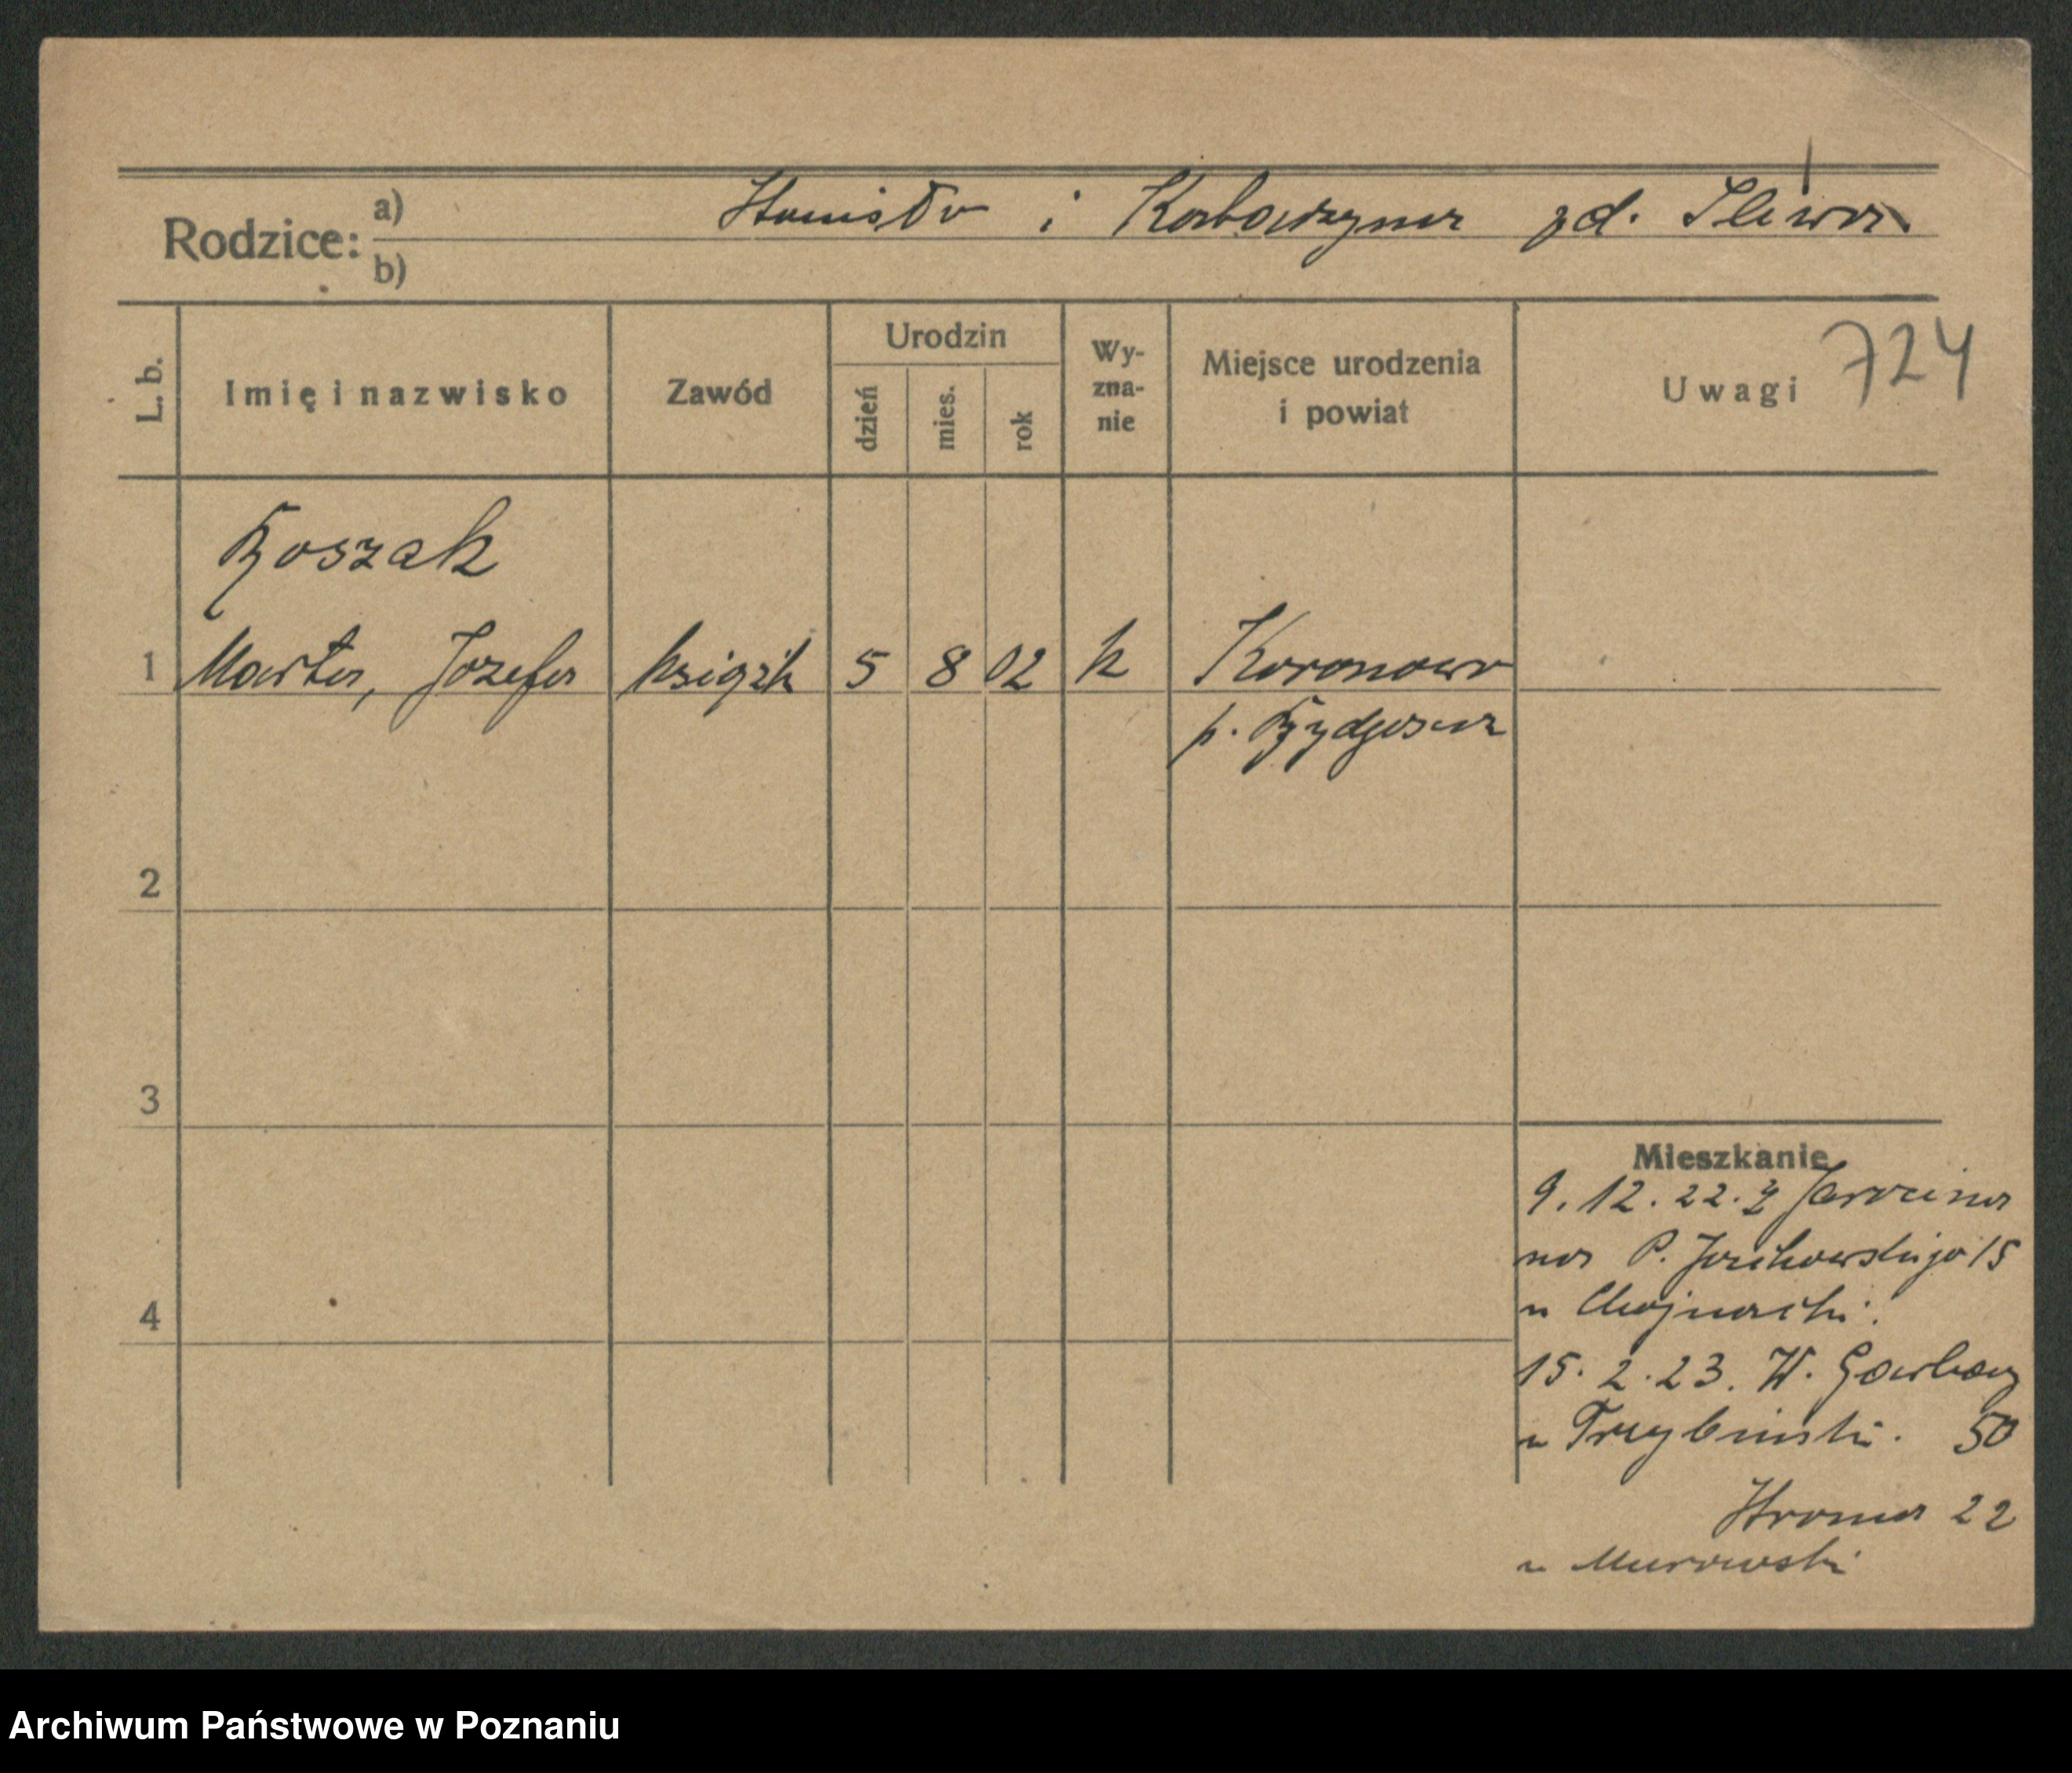 Rodzice: a) b) Stanisław i Katarzyna zd. Śliwa
724
L. b. Imię i nazwisko Zawód Urodzin dzień mies. rok Wy-zna-nie Miejsce urodzenia i powiat Uwagi
Boszak
1 Marta, Józefa książk 5 8 02 k Koronowo
p. Bydgoszcz
2
3
4
Mieszkanie
9. 12. 22. z Jarocina
na P. Jackowskiego 15
u Chojnacki.
15. 2. 23. W. Garbary
u Trzybiński. 50
Stroma 22
u Murawski
Archiwum Państwowe w Poznaniu